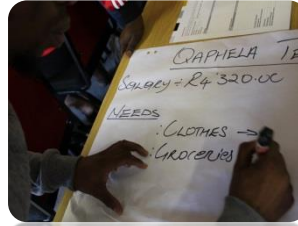 QAPHELA TE
SALARY = R4 320.00
NEEDS
: CLOTHES →
: GROCERIES